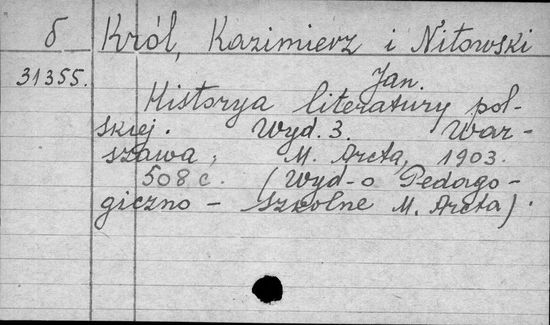 б Król, Kazimierz i Nitowski
Jan.
31355.
Historya literatury pol-
skiej. Wyd. 3. War-
szawa, M. Arcta, 1903.
508 c. (Wyd-o Pedago-
giczno - szkolne M. Arcta).